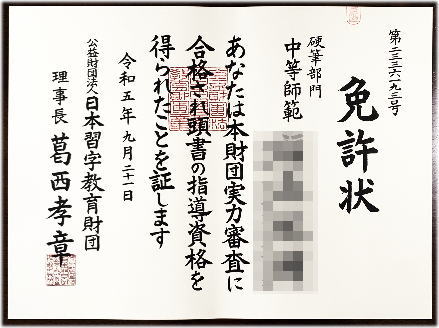 第二三六一九三号
免許状
硬筆部門
中等師範
あなたは本財団実力審査に
合格され頭書の指導資格を
得られたことを証します
令和五年九月二十一日
公益財団法人日本習字教育財団
理事長 葛西孝章